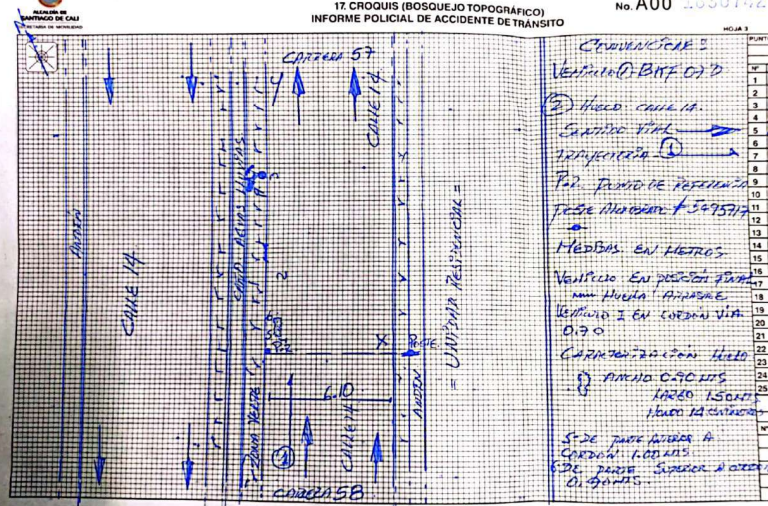 ALCALDÍA DE
SANTIAGO DE CALI
SECRETARÍA DE MOVILIDAD
17. CROQUIS (BOSQUEJO TOPOGRÁFICO)
INFORME POLICIAL DE ACCIDENTE DE TRÁNSITO
No. A00
HOJA 3
CARRERA 57
CALLE 14
ANDÉN
CALLE 14
CANAL AGUAS LLUVIAS
ZONA VERDE
2
X
POSTE
6.10
CALLE 14
ANDÉN
= UNIDAD RESIDENCIAL =
CARRERA 58
VEHICULO 1 BKF 07D
2 HUECO CALLE 14.
SENTIDO VIAL
TRAYECTORIA 1
P.R. PUNTO DE REFERENCIA
POSTE ALUMBRADO # 5495717
MEDIDAS EN METROS
VEHICULO EN POSICIÓN FINAL
HUELLA ARRASTRE
VEHICULO 1 EN CORDON VIA
0.70
CARACTERIZACIÓN HUECO
ANCHO 0.90 MTS
LARGO 1.50 MTS
HONDO 14 CENTIMETROS
5- DE PARTE INFERIOR A
CORDON 1.00 MTS
6- DE PARTE SUPERIOR A CORDON
PUNTO
Nº
1
2
3
4
5
6
7
8
9
10
11
12
13
14
15
16
17
18
19
20
21
22
23
24
25